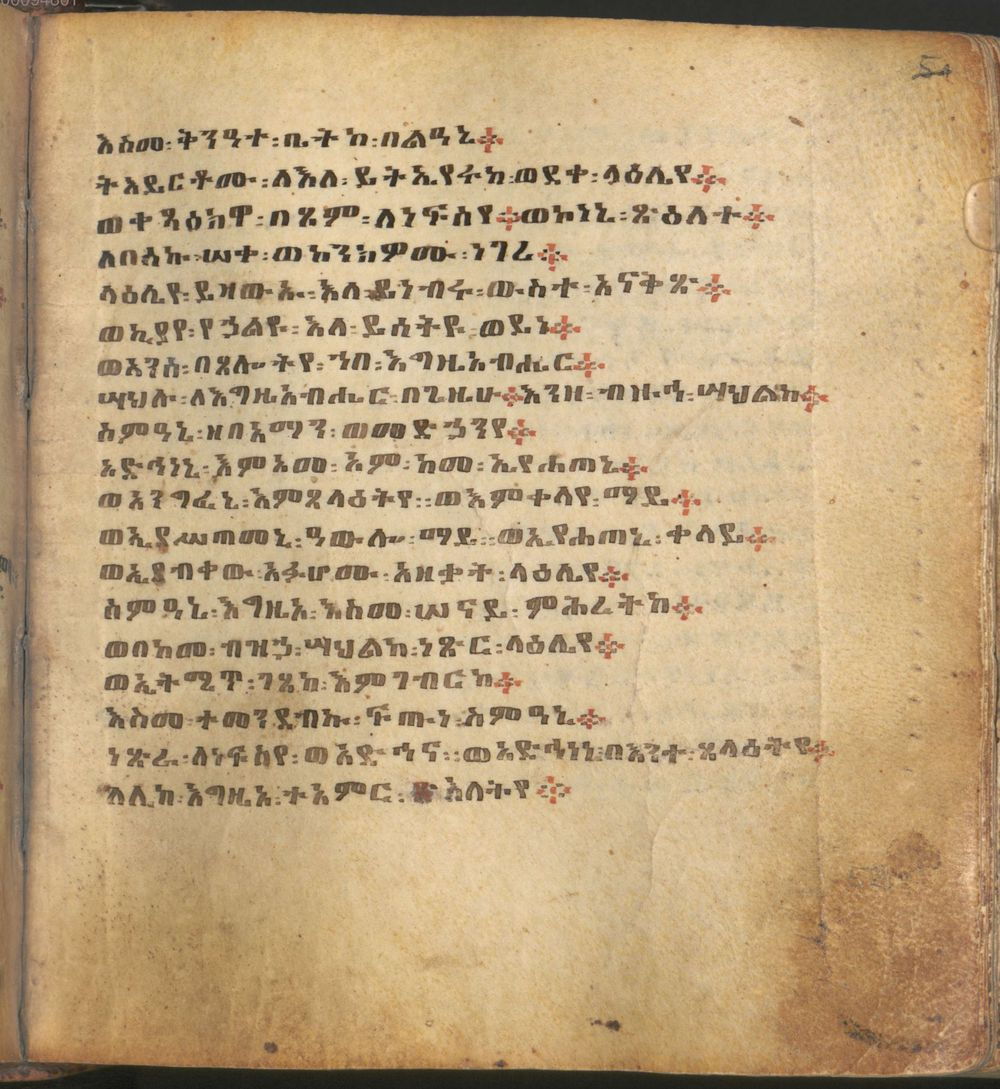 00094801
54
እስመ፡ ቅንዓተ፡ ቤትከ፡ በልዓኒ፨
ትእይርቶሙ፡ ለእለ፡ ይትኤየሩከ፡ ወደቀ፡ ላዕሌየ፨
ወቀጻዕክዋ፡ በጾም፡ ለነፍስየ፨ ወኮነኒ፡ ጽዕለተ፨
ለበስኩ፡ ሠቀ፡ ወኮንክዎሙ፡ ነገረ፨
ላዕሌየ፡ ይዛውኡ፡ እለ፡ ይነብሩ፡ ውስተ፡ አናቅጽ፨
ወኪያየ፡ የኃልዩ፡ እለ፡ ይሰትዩ፡ ወይነ፨
ወአንሰ፡ በጸሎትየ፡ ኀበ፡ እግዚአብሔር፨
ሣህሉ፡ ለእግዚአብሔር፡ በጊዜሁ፨ እንዘ፡ ብዙኅ፡ ሣህልከ፨
ስምዓኒ፡ ዘበአማን፡ ወመድኃንየ፨
አድኅነኒ፡ እምአመ፡ አም፡ ከመ፡ ኢየሐጠኒ፨
ወአንግፈኒ፡ እምጸላዕትየ፡፡ ወእምቀላየ፡ ማይ፨
ወኢያሠጠመኒ፡ ዓውሎ፡ ማይ፡፡ ወኢየሐጠኒ፡ ቀላይ፨
ወኢያብቀው፡ አፉሆሙ፡ አዘቃት፡ ላዕሌየ፨
ስምዓኒ፡ እግዚአ፡ እስመ፡ ሠናይ፡ ምሕረትከ፨
ወበከመ፡ ብዝኃ፡ ሣህልከ፡ ነጽር፡ ላዕሌየ፨
ወኢትሚጥ፡ ገጸከ፡ እምገብርከ፨
እስመ፡ ተመንደብኩ፡ ፍጡነ፡ ስምዓኒ፨
ነጽራ፡ ለነፍስየ፡ ወአድኅና፡፡ ወአድኅነኒ፡ በእንተ፡ ጸላዕትየ፨
ለሊከ፡ እግዚአ፡ ተአምር፡ ጽእለትየ፨